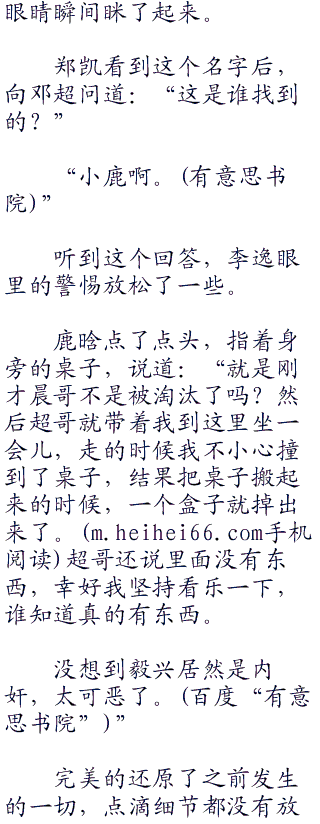 眼睛瞬间眯了起来。
郑凯看到这个名字后，
向邓超问道：“这是谁找到
的？”
“小鹿啊。(有意思书
院)”
听到这个回答，李逸眼
里的警惕放松了一些。
鹿晗点了点头，指着身
旁的桌子，说道：“就是刚
才晨哥不是被淘汰了吗？然
后超哥就带着我到这里坐一
会儿，走的时候我不小心撞
到了桌子，结果把桌子搬起
来的时候，一个盒子就掉出
来了。(m.heihei66.com手机
阅读)超哥还说里面没有东
西，幸好我坚持看乐一下，
谁知道真的有东西。
没想到毅兴居然是内
奸，太可恶了。(百度“有意
思书院”)”
完美的还原了之前发生
的一切，点滴细节都没有放